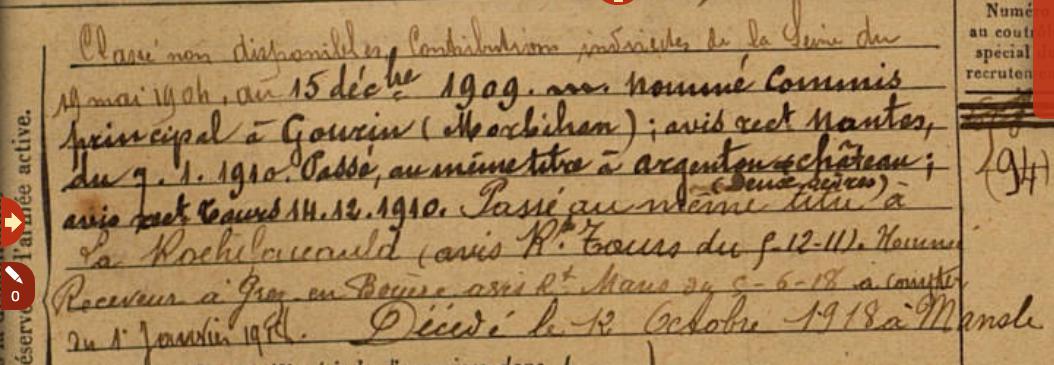 Classé non disponibles, Contributions indirectes de la Seine du
19 mai 1904, au 15 déc.bre 1909. nommé Commis
principal à Gourin (Morbihan) ; avis rect Nantes,
du 7.1.1910. Passé, au même titre à argenton-château ;
(Deux-Sèvres)
avis rect Tours 14.12.1910. Passé au même titre à
La Rochefoucauld (avis Rt. Tours du 5-12-11). Nommé
Receveur à Grez en Bouère avis Rt Mans du 5-6-18 a compter
du 1r Janvier
Décédé le 12 Octobre 1918 à Mansle
l'armée active.
Numéro
au contrôle
spécial
recrutement
(94)
0